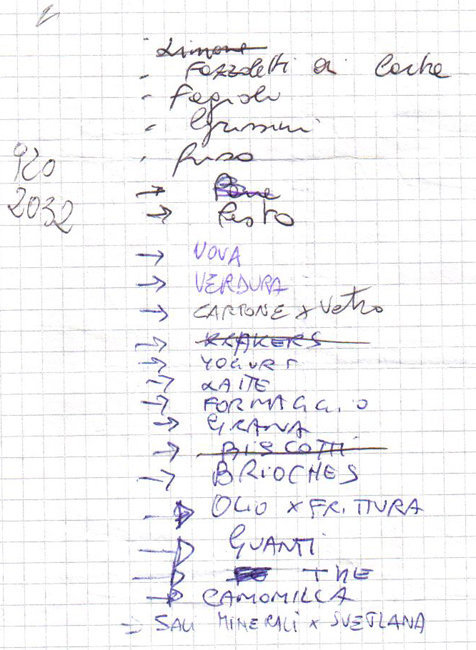 Limone
Fazzoletti di Carta
Fagioli
Grissini
Riso
920
2032
Pane
Pesto
UOVA
VERDURA
CARTONE x Vetro
KRAKERS
YOGURT
LATTE
FORMAGGIO
GRANA
BISCOTTI
BRIOCHES
OLIO x FRITTURA
GUANTI
THE
CAMOMILLA
SALI MINERALI x SVETLANA